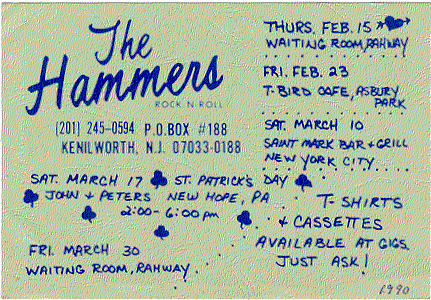 The
Hammers
ROCK N ROLL
(201) 245-0594 P.O.BOX #188
KENILWORTH, N.J. 07033-0188
THURS. FEB. 15
WAITING ROOM, RAHWAY
FRI. FEB. 23
T-BIRD CAFE, ASBURY
PARK
SAT. MARCH 10
SAINT MARK BAR + GRILL
NEW YORK CITY
SAT. MARCH 17 ST. PATRICK'S DAY
JOHN & PETERS NEW HOPE, PA
2:00 - 6:00 pm
FRI. MARCH 30
WAITING ROOM, RAHWAY
T-SHIRTS
+ CASSETTES
AVAILABLE AT GIGS.
JUST ASK!
1990